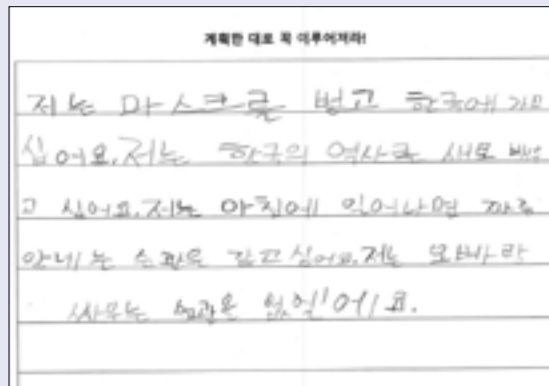 계획한 대로 꼭 이루어져라!
저는 마스크를 벗고 한국에 가고
십어요. 저는 한국의 역사를 새로 배우
고 십어요. 저는 아침에 일어나면 짜증
안내는 습관을 갖고 싶어요. 저는 오빠랑
싸우는 습관은 없엘어요.